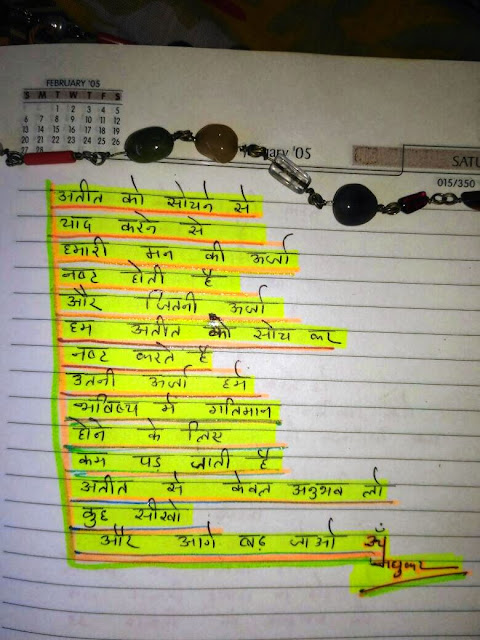 FEBRUARY '05
S M T W T F S
1 2 3 4 5
6 7 8 9 10 11 12
13 14 15 16 17 18 19
20 21 22 23 24 25 26
27 28
'05
SATU
015/350
अतीत को सोचने से
याद करने से
हमारी मन की ऊर्जा
नष्ट होती है
और जितनी ऊर्जा
हम अतीत को सोच कर
नष्ट करते है
उतनी ऊर्जा हमे
भविष्य मे गतिमान
होने के लिए
कम पड़ जाती है
अतीत से केवल अनुभव लो
कुछ सीखो
और आगे बढ़ जाओ